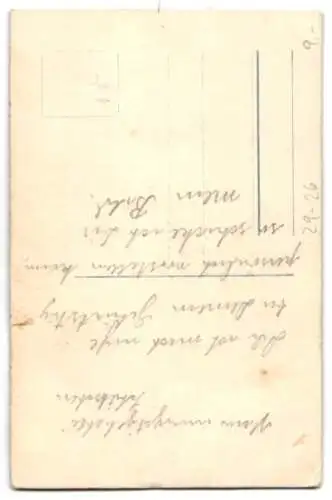 Schätzchen
Da ich mich nicht
zu Deinem Geburtstag
persönlich vorstellen kann,
so schicke ich Dir
mein Bild.
29-26
9.-